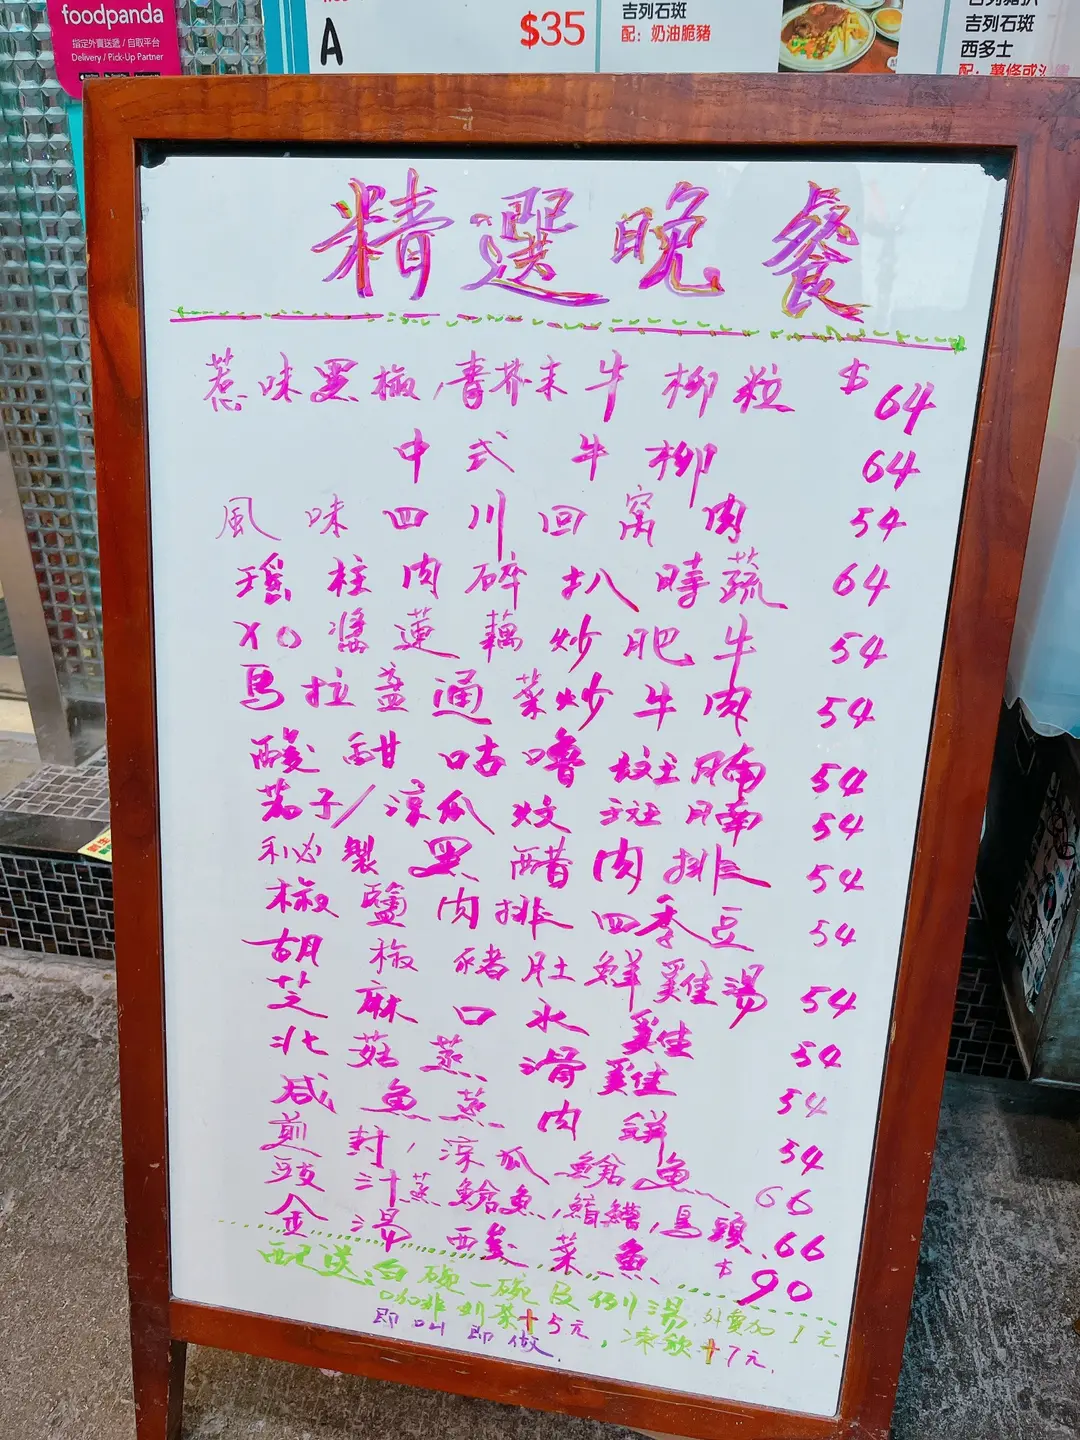 foodpanda
指定外賣送遞 / 自取平台
Delivery / Pick-Up Partner
A
$35
吉列石斑
配：奶油脆豬
吉列石斑
西多士
配：薯條或
精選晚餐
惹味黑椒,青芥末牛柳粒 $64
中式牛柳 64
風味四川回窩肉 54
瑤柱肉碎扒時蔬 64
XO醬蓮藕炒肥牛 54
馬拉盞通菜炒牛肉 54
酸甜咕嚕斑腩 54
茄子/涼瓜炆斑腩 54
秘製黑醋肉排 54
椒鹽肉排四季豆 54
胡椒豬肚鮮雞湯 54
芝麻口水雞 54
北菇蒸滑雞 54
咸魚蒸肉餅 54
煎封,涼瓜鯰魚 66
豉汁蒸鯰魚,烏頭.66
金湯酸菜魚 $90
配送:白碗一碗及例湯.外賣加1元.
咖啡奶茶+5元,凍飲+7元.
即叫即做.